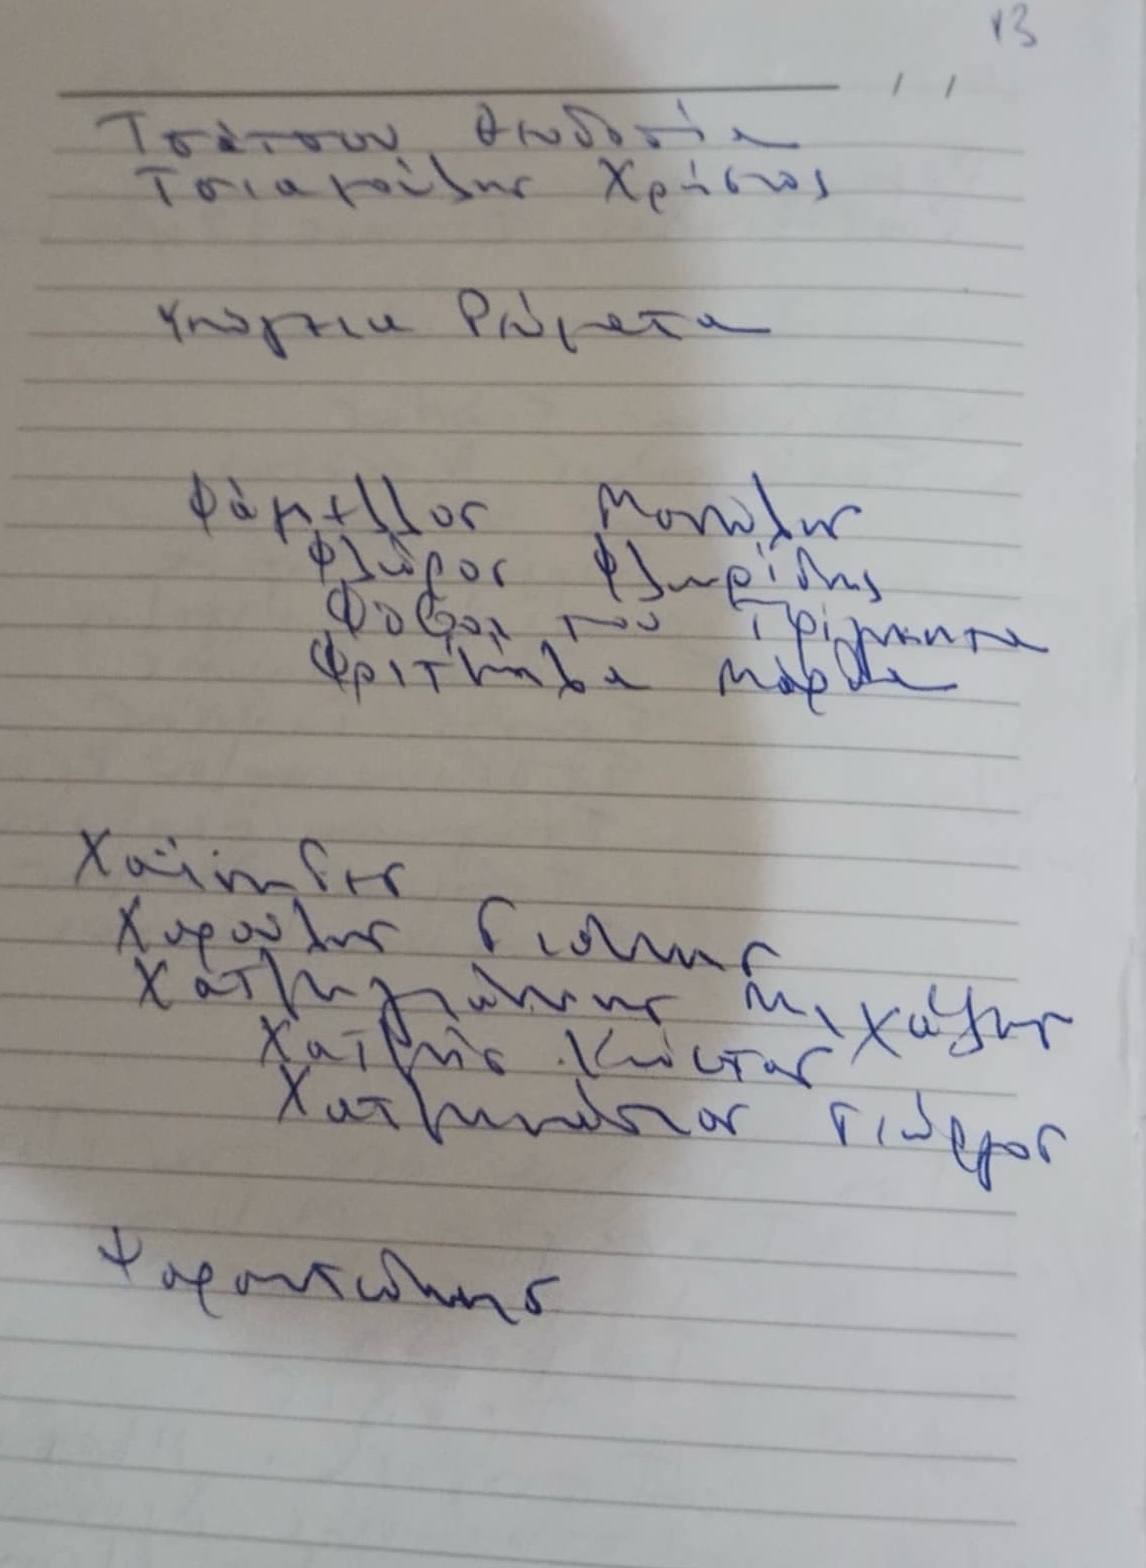 13
Τσάτσου Θεοδοσία
Τσιαμούλης Χρήστος
Υπόγεια Ρεύματα
Φάμελλος Μανώλης
Φλώρος Φλωρίδης
Φόβος του Πρίγκηπα
Φριτζήλα Μάρθα
Χαΐνηδες
Χαρούλης Γιάννης
Χατζηγιάννης Μιχάλης
Χατζής Κώστας
Χατζηνάσιος Γιώργος
Ψαραντώνης